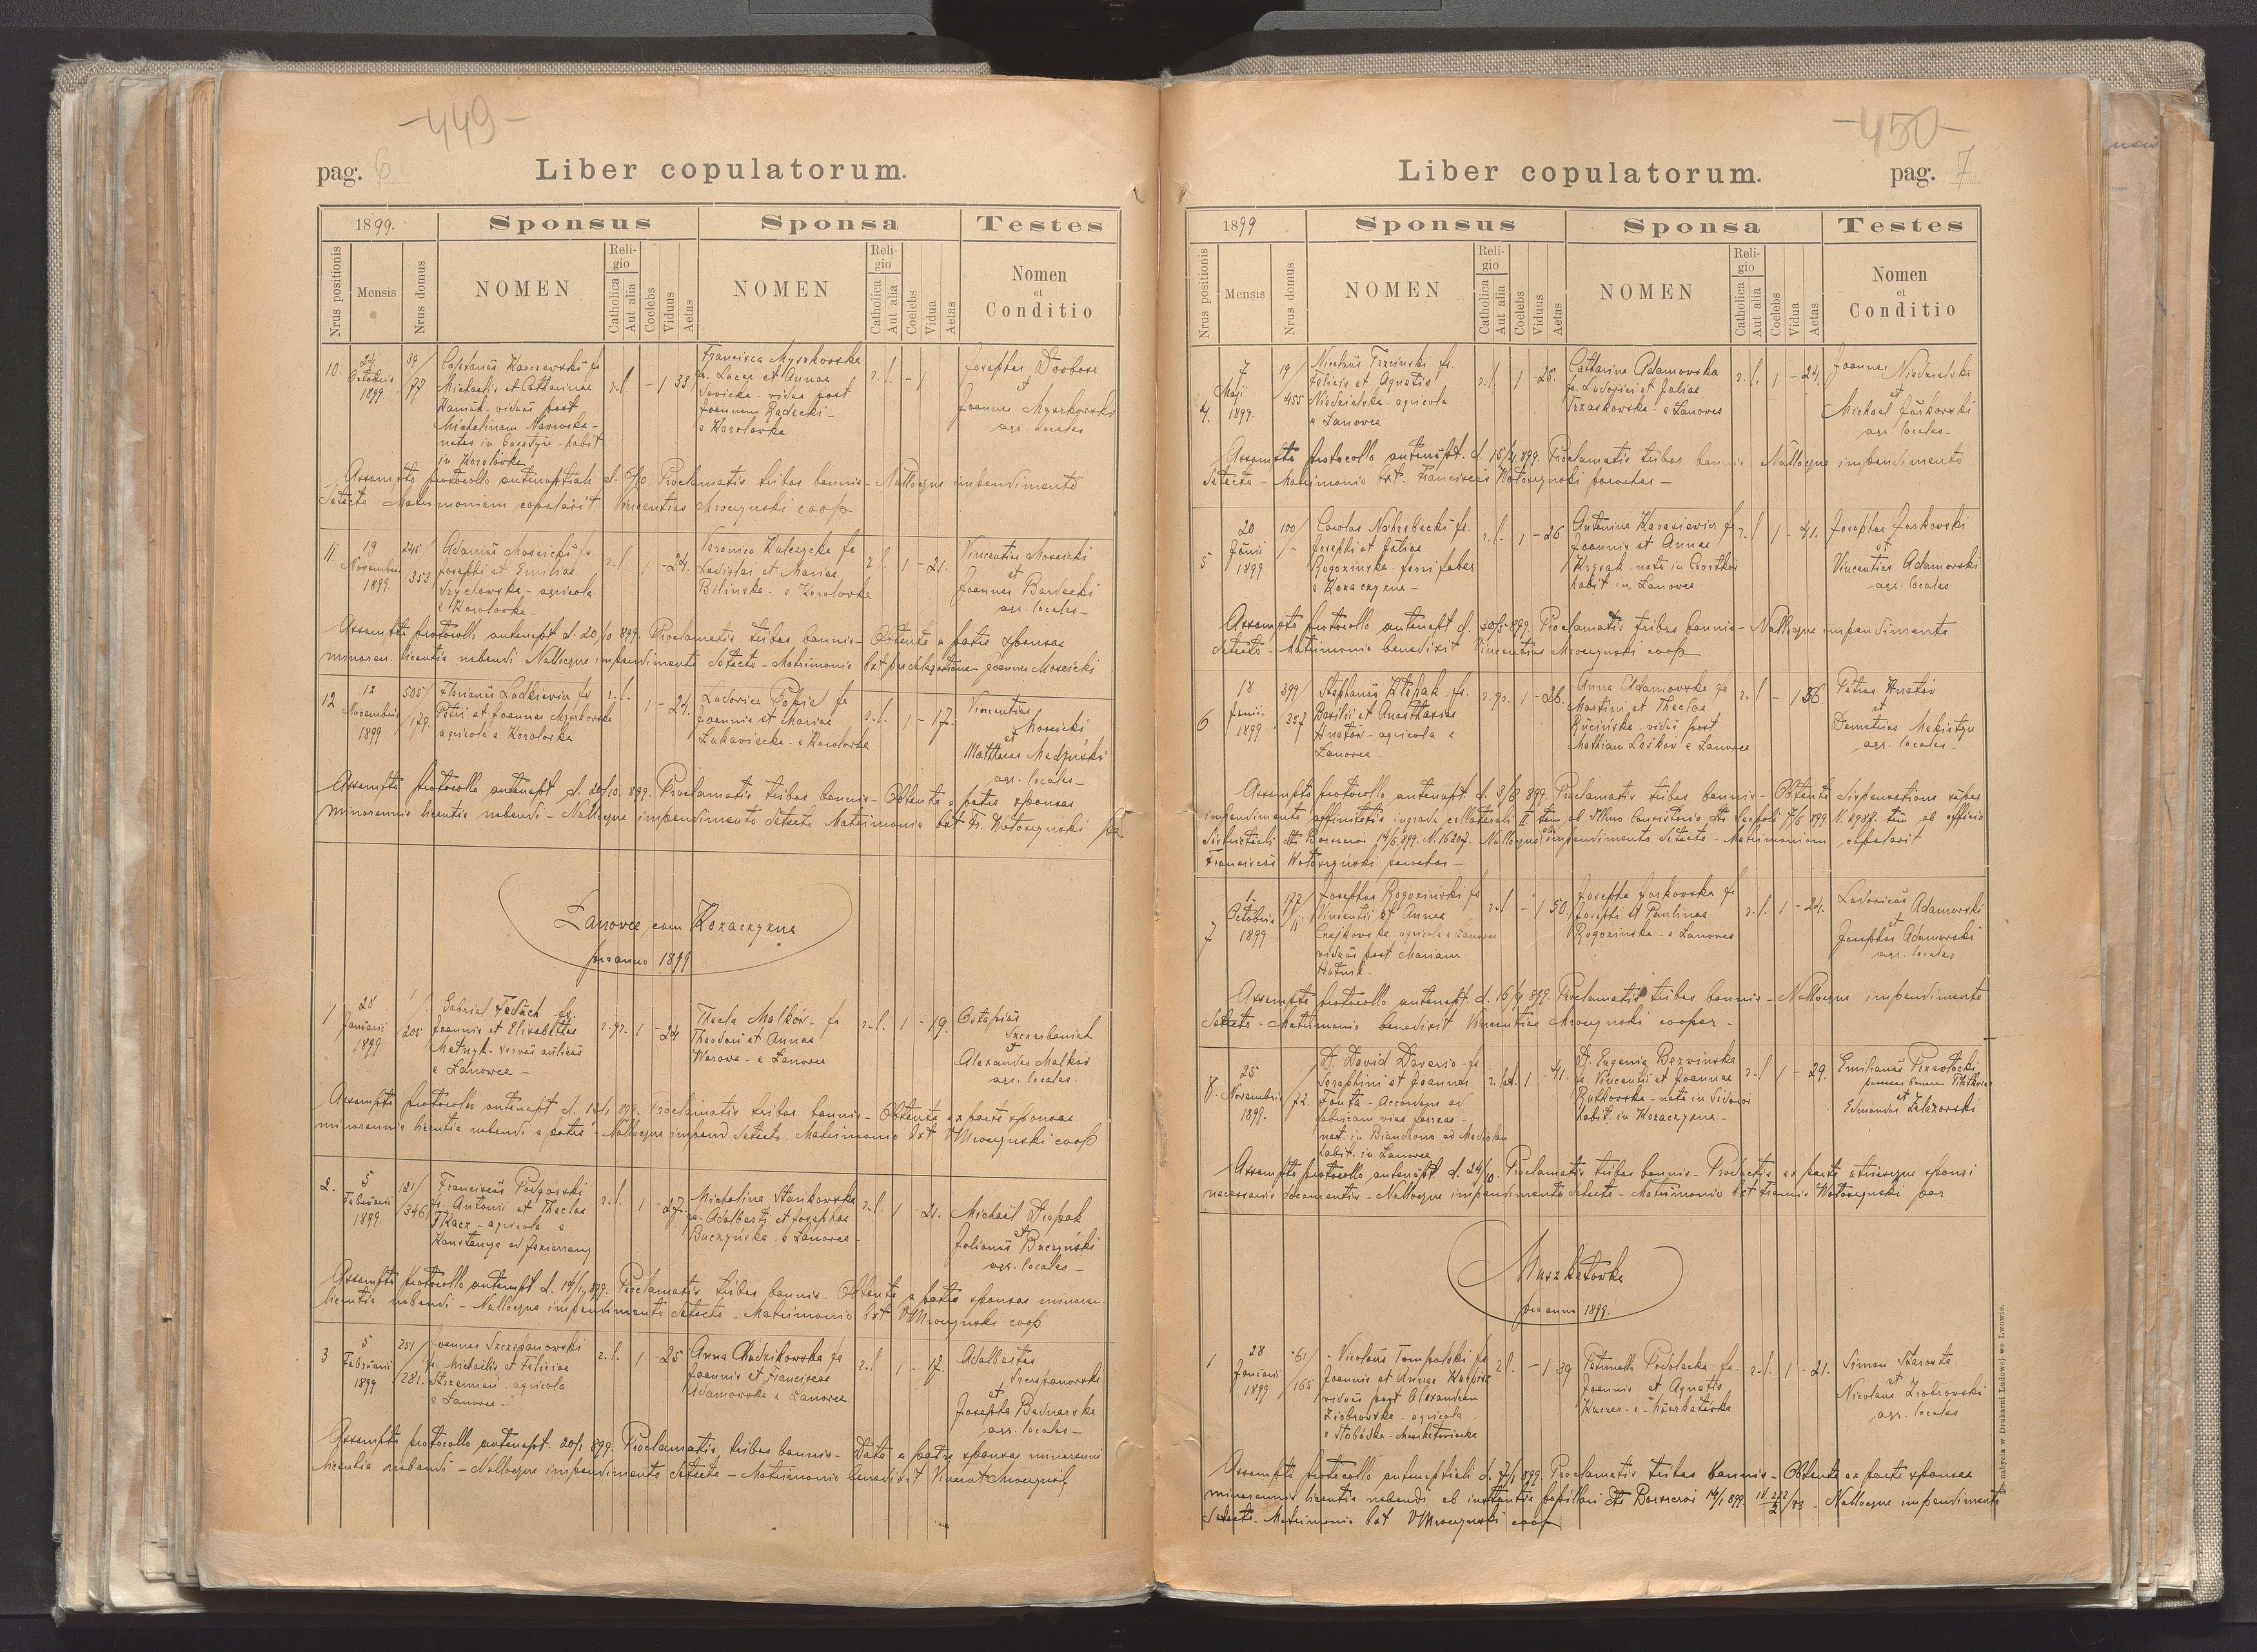 -449-
pag. 6
Liber copulatorum.
1899.
Sponsus
Sponsa
Testes
Nrus positionis
Mensis
Nrus domus
NOMEN
Religio
Catholica
Aut alia
Coelebs
Viduus
Aetas
NOMEN
Religio
Catholica
Aut alia
Coelebs
Vidua
Aetas
Nomen
et
Conditio
10.
24
Octobris
1899.
77
Michaelis et Catharinae
viduus post
Michalinam
habit
in Korolówka
r. l. - 1 33
Francisca Myszkowska
fa. Lucae et Annae
vidua post
Joannem Radecki -
e Korolowka
r. l. - 1
Josephus
et
Joannes Myszkowski
agr. locales
Assumpto protocollo antenuptiali d. Proclamatis tribus bannis - Nulloque impendimento
detecto Matrimonium copulavit Vincentius Mroczynski coop
11.
19
Novembris
1899.
245/
353
Adamus Moscicki fs.
Josephi et Emiliae
agricola
e Korolowka -
r. l. 1 - 24.
Veronica Kulczycka fa
Ladislai et Mariae
Bilinska - e Korolowka
r. l. 1 - 21.
Vincentius Moscicki
et
Joannes Bardecki
agr. locales -
Assumpto protocollo antenupt d. 20/10 899. Proclamatis tribus bannis - Obtenta a patre sponsae
minoren. licentia nubendi Nulloque impendimento detecto - Matrimonio bxt Joannes Moscicki
12
12
Novembris
1899
505/
179.
Florianus Ladkiewicz fs
Petri et Joannae Myszkowska
agricola e Korolowka
r. l. 1 - 24.
Ludovica Popiel fa
Joannis et Mariae
e Korolowka
r. l. 1 - 17.
Vincentius
Moscicki
et
Matthaeus
agr. locales -
Assumpto protocollo antenupt d. 20/10. 899. Proclamatis tribus bannis - Obtenta a patre sponsae
minorennis licentia nubendi - Nulloque impendimento detecto Matrimonio bxt Fr. Wołoszyński
Łanowce cum Kozaczyzna
pro anno 1899
1
28
Januarii
1899.
1/
205
Gabriel Feduch fs.
Joannis et Elisabethae
servus aulicus
e Łanowce -
r. gr. 1 - 24
Thecla Malków fa
Theodori et Annae
e Łanowce
r. l. 1 - 19.
Ostapius
Szczerbaniuk
et
Alexander Malków
agr. locales -
Assumpto protocollo antenupt d. 899. Proclamatis tribus bannis - Obtenta ex parte sponsae
minorennis licentia nubendi a patre - Nulloque impend. detecto. Matrimonio bxt V Mroczynski coop
2.
5
Februarii
1899.
121/
346
Franciscus Podgórski
fs. Antonii et Theclae
Tkacz - agricola e
Konstancya ad Jezierzany
r. l. 1 - 27.
Michalina Stankowska
fa. Adalberti et Josephae
Buczyńska e Łanowce -
r. l. 1 - 21.
Michael
et
Julianus Buczyński
agr. locales -
Assumpto protocollo antenupt d. 14/1 899. Proclamatis tribus bannis - Obtenta a patre sponsae minoren.
licentia nubendi - Nulloque impendimento detecto - Matrimonio bxt V Mroczynski coop
3
5
Februarii
1899
251/
281.
Joannes Szczepanowski
fs. Michaelis et Feliciae
agricola
e Łanowce -
r. l. 1 - 25
Anna Chudzikowska fa
Joannis et Franciscae
Adamowska e Łanowce
r. l. 1 - 17.
Adalbertus
Szczepanowski
et
Josepha Bednarska
agr. locales -
Assumpto protocollo antenupt. 20/1 899. Proclamatis tribus bannis - Data a patre sponsae minorenni
licentia nubendi - Nulloque impendimento detecto - Matrimonio benedixit Vincent Mroczynski
-450-
Liber copulatorum.
pag. 7
1899
Sponsus
Sponsa
Testes
Nrus positionis
Mensis
Nrus domus
NOMEN
Religio
Catholica
Aut alia
Coelebs
Viduus
Aetas
NOMEN
Religio
Catholica
Aut alia
Coelebs
Vidua
Aetas
Nomen
et
Conditio
4.
7
Maji
1899.
19/
455
Nicolaus Trzcinski fs.
Felicis et Agnetis
Niedzielska - agricola
e Łanowce
r. l. 1 - 26.
Catharina Adamowska
fa. Ludovici et Juliae
Trzaskowska - e Łanowce
r. l. 1 - 24.
Joannes Niedzielski
et
Michael Jurkowski
agr. locales -
Assumpto protocollo antenupt. d. 15/4 899. Proclamatis tribus bannis - Nulloque impendimento
detecto - Matrimonio bxt. Franciscus Wołoszynski parochus -
5
20
Junii
1899
100/
-
Carolus Nahrebecki fs.
Josephi et Juliae
Rogozinska - ferri faber
e Kozaczyzna -
r. l. 1 - 26
Antonina Karasiewicz fa
Joannis et Annae
nata in Czortków
habit in Łanowce
r. l 1 - 41.
Josephus Jurkowski
et
Vincentius Adamowski
agr. locales
Assumpto protocollo antenupt d. 30/5 899. Proclamatis tribus bannis - Nulloque impendimento
detecto - Matrimonio benedixit Vincentius Mroczynski coop
6
18
Junii
1899
399/
357
Stephanus fs.
Basilii et Anastasiae
Hnatów - agricola e
Łanowce
r. gr. 1 - 26.
Anna Adamowska fa
Martini et Theclae
Rucińska - vidua post
Mathiam e Łanowce
r. l - 1 36.
Petrus Hnatów
et
Demetrius
agr. locales -
Assumpto protocollo antenupt. d. 899. Proclamatis tribus bannis - Obtenta dispensatione super
impendimento affinitatis in gradu collaterali II tam ab Illmo Consistorio Leopoli 7/6 899 N. 2987. tum ab officio
districtuali Borszczów 14/6 899. N. 16207. Nulloque impendimento detecto - Matrimonium copulavit
Franciscus Wołoszyński parochus -
7
1
Octobris
1899
177/
11
Josephus Rogoziński fs
Vincentii et Annae
Czajkowska - agricola e Łanowce
viduus post Mariam
Hutnik -
r. l - 1 50.
Josepha Jurkowska fa
Josephi et Paulinae
Rogozinska - e Łanowce
r. l. 1 - 24.
Ludovicus Adamowski
et
Josephus Adamowski
agr. locales
Assumpto protocollo antenupt. d. 16/9 899. Proclamatis tribus bannis - Nulloque impendimento
detecto - Matrimonio benedixit Vincentius Mroczynski cooper -
8.
25
Novembris
1899.
/72.
D. David Daverio - fs
Seraphini et Joannae
ad
fabricam viae ferreae -
nat. in Biandrono ad Mediolan
habit. in Łanowce
r. lat. 1 - 41.
D. Eugenia Bezwinska
fa. Vincentii et Joannae
Rutkowska - nata in Sidorów
habit. in Kozaczyzna -
r. l 1 - 29.
Emilianus
et
Edmundus
Assumpto protocollo antenupt. d. 24/10. Proclamatis tribus bannis - Productis ex parte utriusque sponsi
necessariis documentis - Nulloque impendimento detecto - Matrimonio bxt Francis Wołoszynski par
Muszkatówka
pro anno 1899.
1
28
Januarii
1899
61/
165
Nicolaus fs
Joannis et Annae
viduus post Alexandram
Ziobrowska - agricola
e Słobódka - Muszkatowiecka
r l. - 1 39
Petronella Podolecka fa.
Joannis et Agnetis
Kuczer - e Muszkatówka
r. l. 1 - 21.
Simon Starosta
et
Nicolaus Ziobrowski
agr. locales
Assumpto protocollo antenuptiali d. 7/1 899. Proclamatis tribus bannis - Obtenta ex parte sponsae
minorennis licentia nubendi ab instantia pupillari Borszczów 14/1 899. - Nulloque impendimento
detecto - Matrimonio bxt V Mroczynski coop
Do nabycia w Drukarni Ludowej we Lwowie.